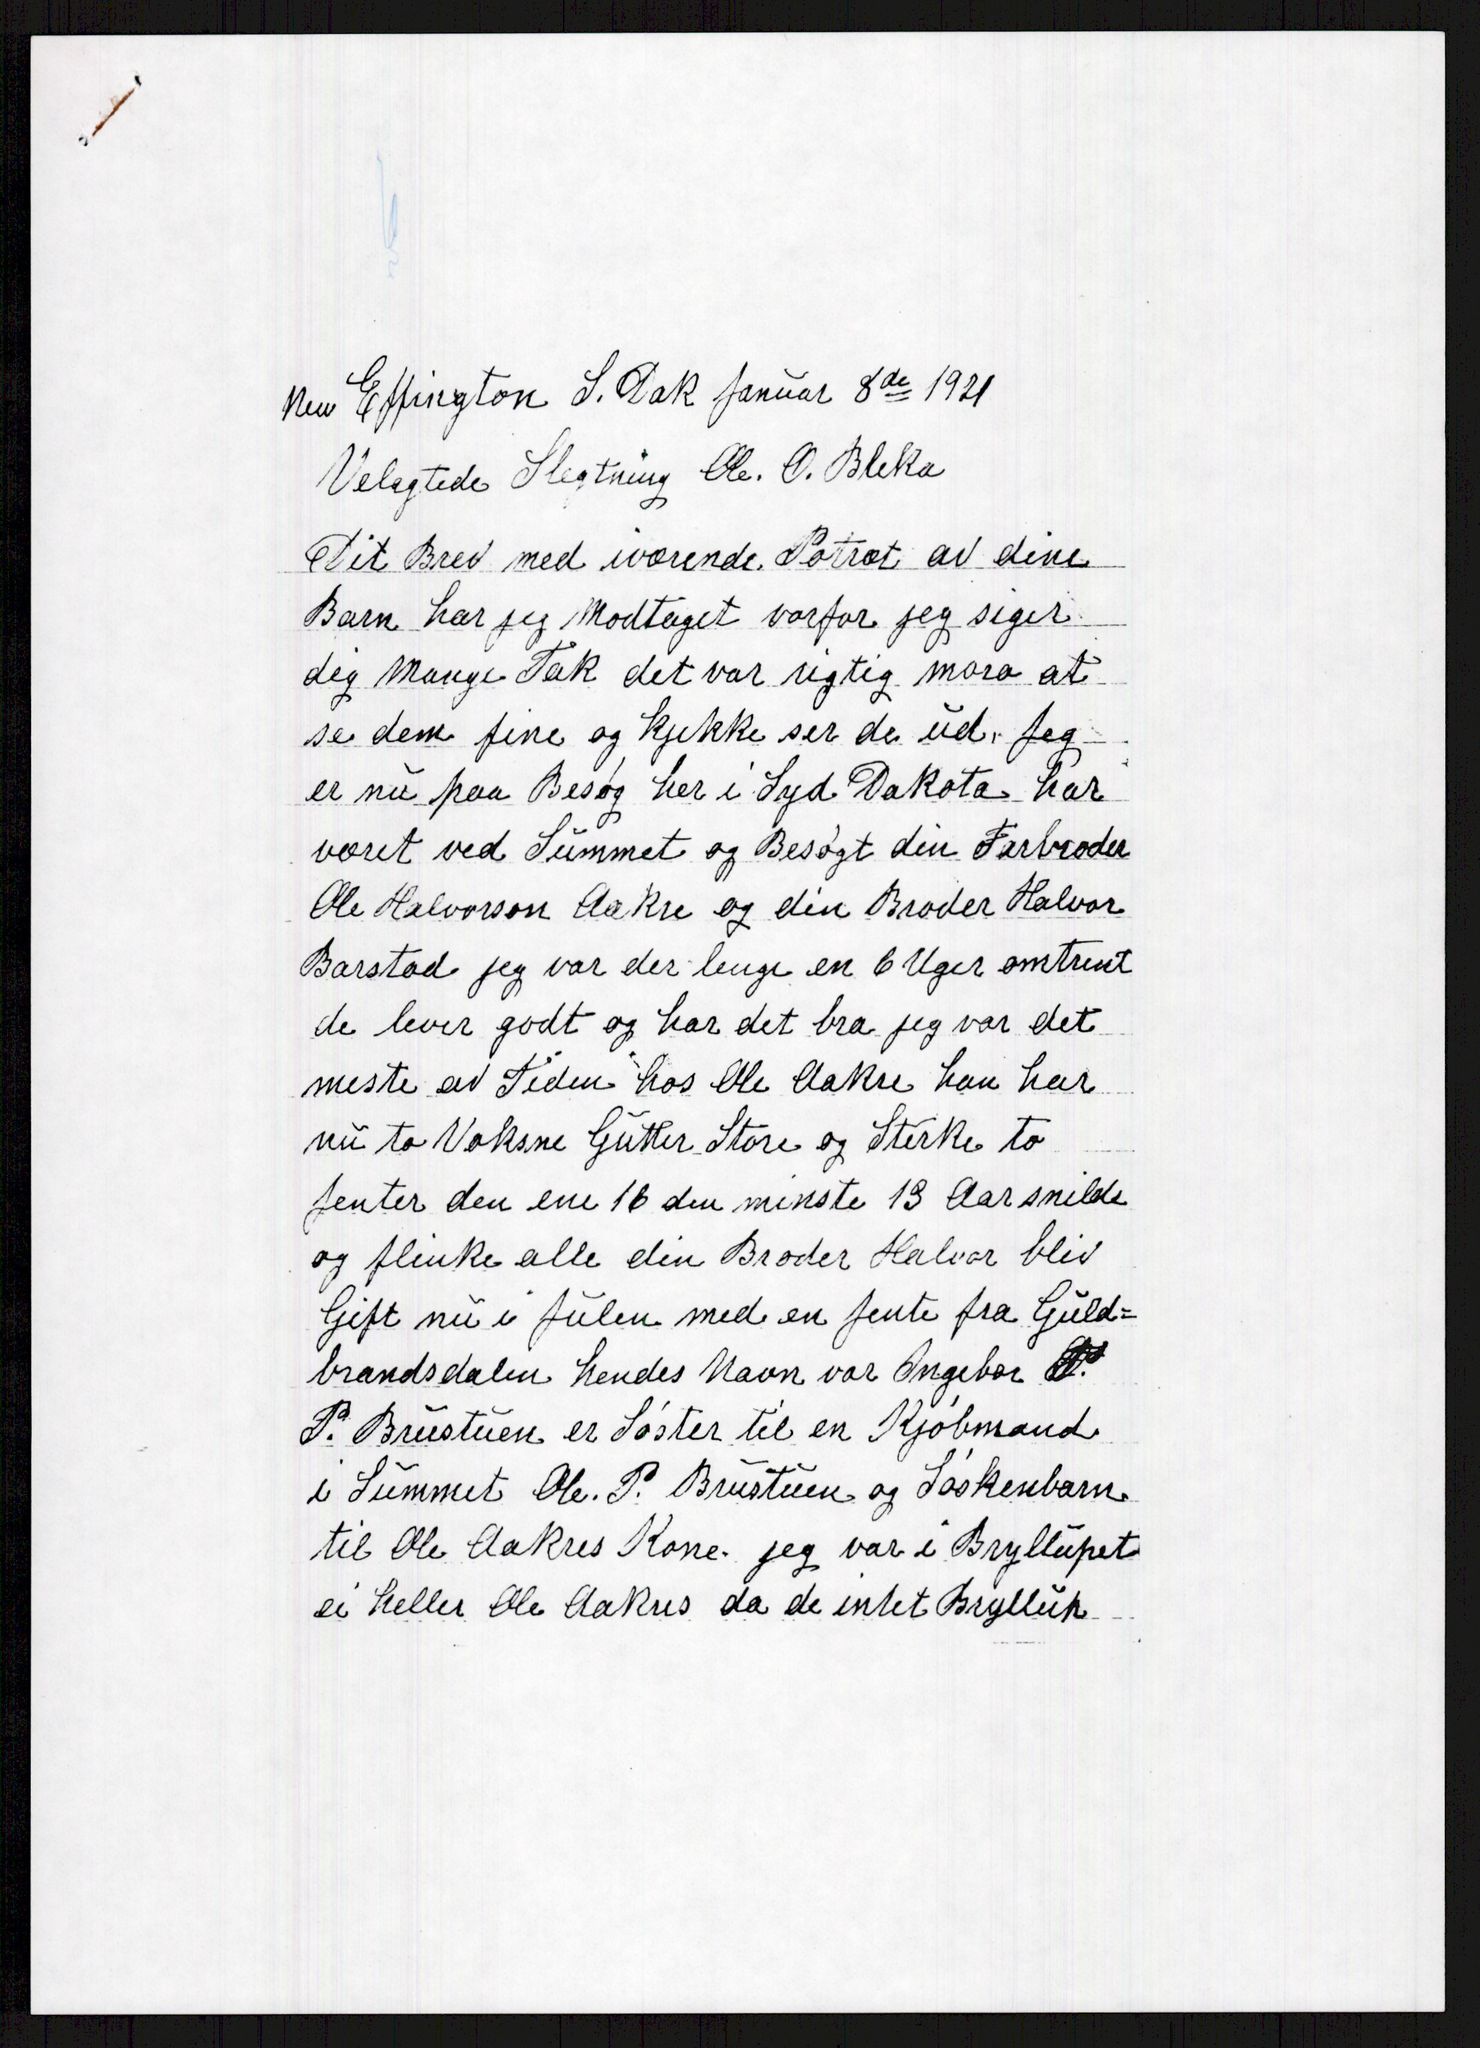 New Effington S. Dak Januar 8de 1921
Velagtede Slegtning Ole. O. Bleka
Dit Brev med iværende Potræt av dine
Barn har jeg Modtaget vorfor jeg siger
dig Mange Tak det var rigtig mora at
se dem fine og kjekke ser de ud. Jeg
er nu paa Besøg her i Syd Dakota har
været ved Summet og Besøgt din Farbroder
Ole Halvorson Aakre og din Broder Halvor
Barstad jeg var der lenge en 6 Uger omtrent
de lever godt og har det bra jeg var det
meste av Tiden hos Ole Aakre han har
nu to Voksne Gutter Store og Sterke to
Jenter den ene 16 den minste 13 Aar snilde
og flinke alle din Broder Halvor bliv
Gift nu i Julen med en Jente fra Guld=
brandsdalen hendes Navn var Ingebor
P. Brustuen er Søster til en Kjøbmand
i Summet Ole. P. Brustuen og Søskenbarn
til Ole Aakres Kone. jeg var i Bryllupet
ei heller Ole Aakres da de intet Bryllup